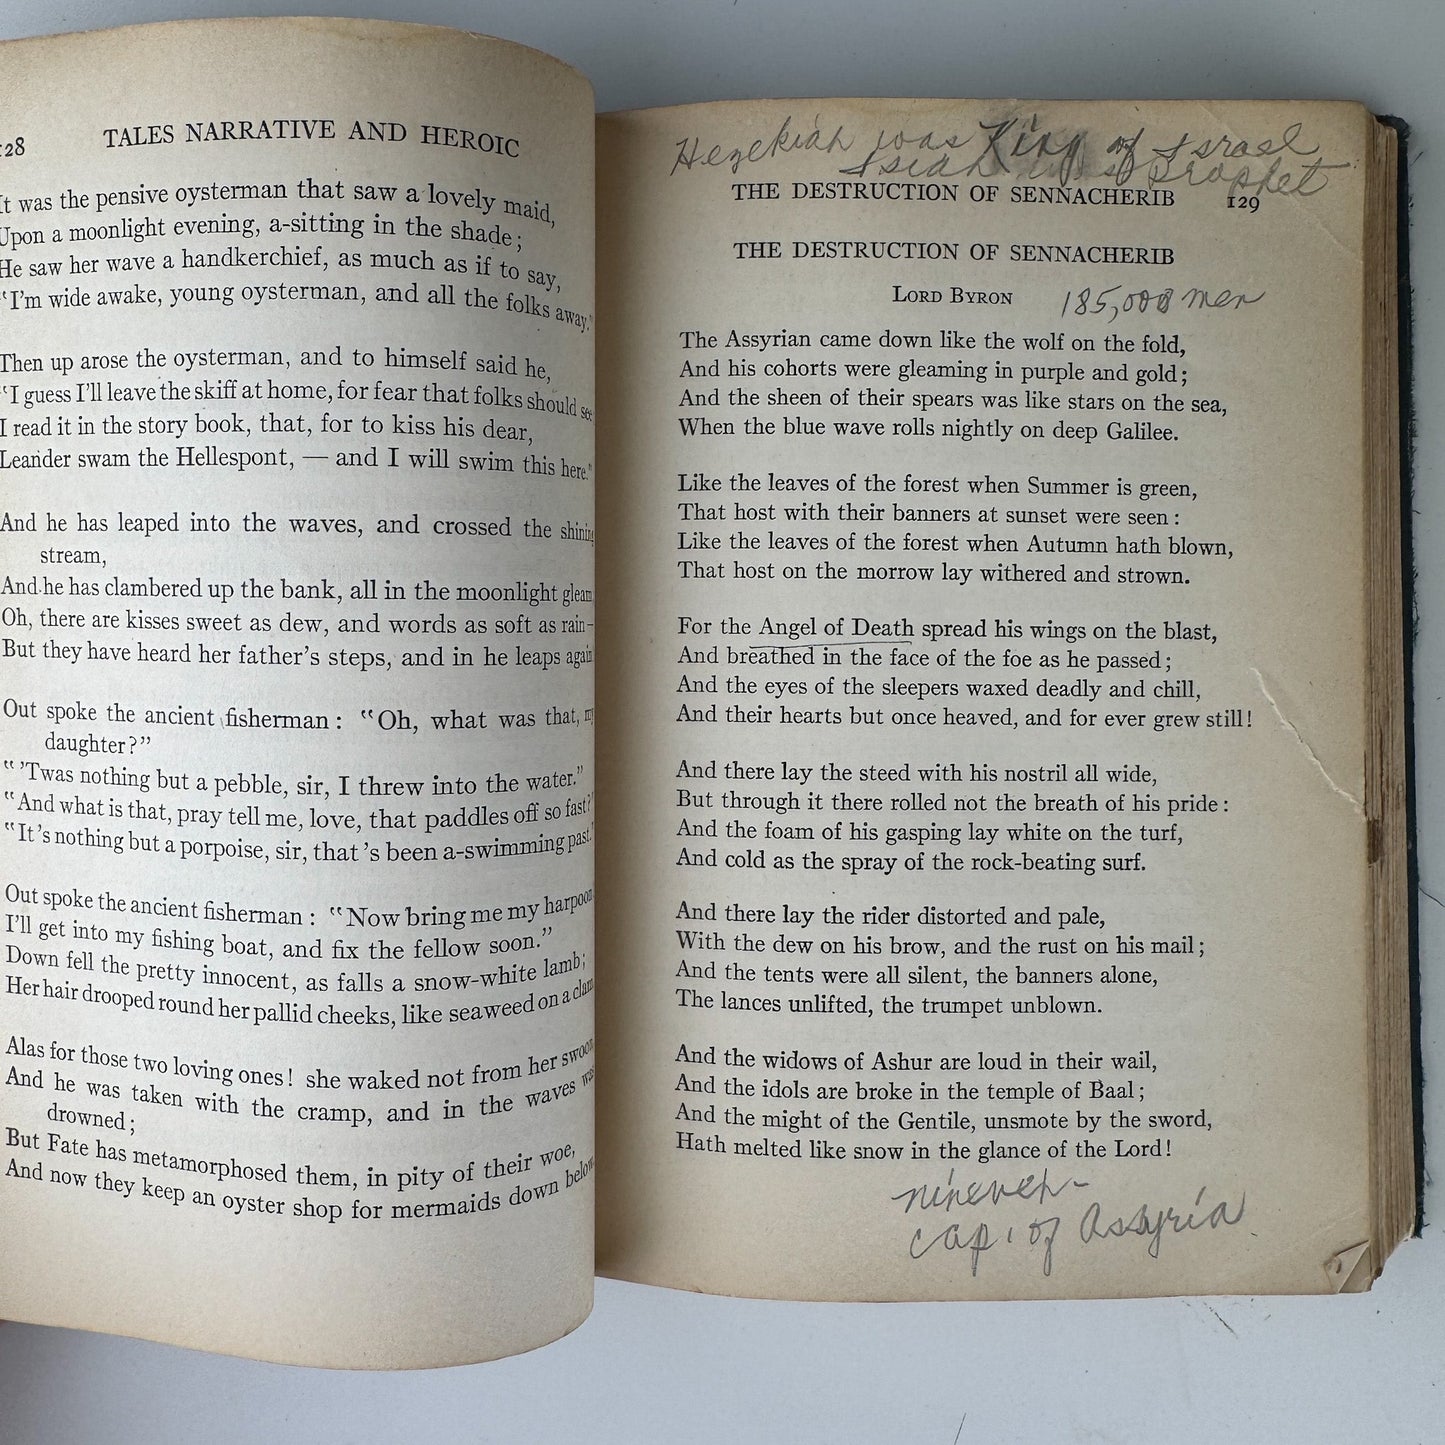 128 TALES NARRATIVE AND HEROIC
It was the pensive oysterman that saw a lovely maid,
Upon a moonlight evening, a-sitting in the shade;
He saw her wave a handkerchief, as much as if to say,
"I'm wide awake, young oysterman, and all the folks away."
Then up arose the oysterman, and to himself said he,
"I guess I'll leave the skiff at home, for fear that folks should see
I read it in the story book, that, for to kiss his dear,
Leander swam the Hellespont, — and I will swim this here."
And he has leaped into the waves, and crossed the shining
stream,
And he has clambered up the bank, all in the moonlight gleam
Oh, there are kisses sweet as dew, and words as soft as rain—
But they have heard her father's steps, and in he leaps again
Out spoke the ancient fisherman: "Oh, what was that, my
daughter?"
"'Twas nothing but a pebble, sir, I threw into the water."
"And what is that, pray tell me, love, that paddles off so fast?"
"It's nothing but a porpoise, sir, that's been a-swimming past."
Out spoke the ancient fisherman: "Now bring me my harpoon
I'll get into my fishing boat, and fix the fellow soon."
Down fell the pretty innocent, as falls a snow-white lamb;
Her hair drooped round her pallid cheeks, like seaweed on a clam
Alas for those two loving ones! she waked not from her swoon
And he was taken with the cramp, and in the waves was
drowned;
But Fate has metamorphosed them, in pity of their woe,
And now they keep an oyster shop for mermaids down below
Hezekiah was King of Israel
Isiah was prophet
THE DESTRUCTION OF SENNACHERIB 129
THE DESTRUCTION OF SENNACHERIB
LORD BYRON 185,000 men
The Assyrian came down like the wolf on the fold,
And his cohorts were gleaming in purple and gold;
And the sheen of their spears was like stars on the sea,
When the blue wave rolls nightly on deep Galilee.
Like the leaves of the forest when Summer is green,
That host with their banners at sunset were seen:
Like the leaves of the forest when Autumn hath blown,
That host on the morrow lay withered and strown.
For the Angel of Death spread his wings on the blast,
And breathed in the face of the foe as he passed;
And the eyes of the sleepers waxed deadly and chill,
And their hearts but once heaved, and for ever grew still!
And there lay the steed with his nostril all wide,
But through it there rolled not the breath of his pride:
And the foam of his gasping lay white on the turf,
And cold as the spray of the rock-beating surf.
And there lay the rider distorted and pale,
With the dew on his brow, and the rust on his mail;
And the tents were all silent, the banners alone,
The lances unlifted, the trumpet unblown.
And the widows of Ashur are loud in their wail,
And the idols are broke in the temple of Baal;
And the might of the Gentile, unsmote by the sword,
Hath melted like snow in the glance of the Lord!
Nineveh-
cap. of Assyria